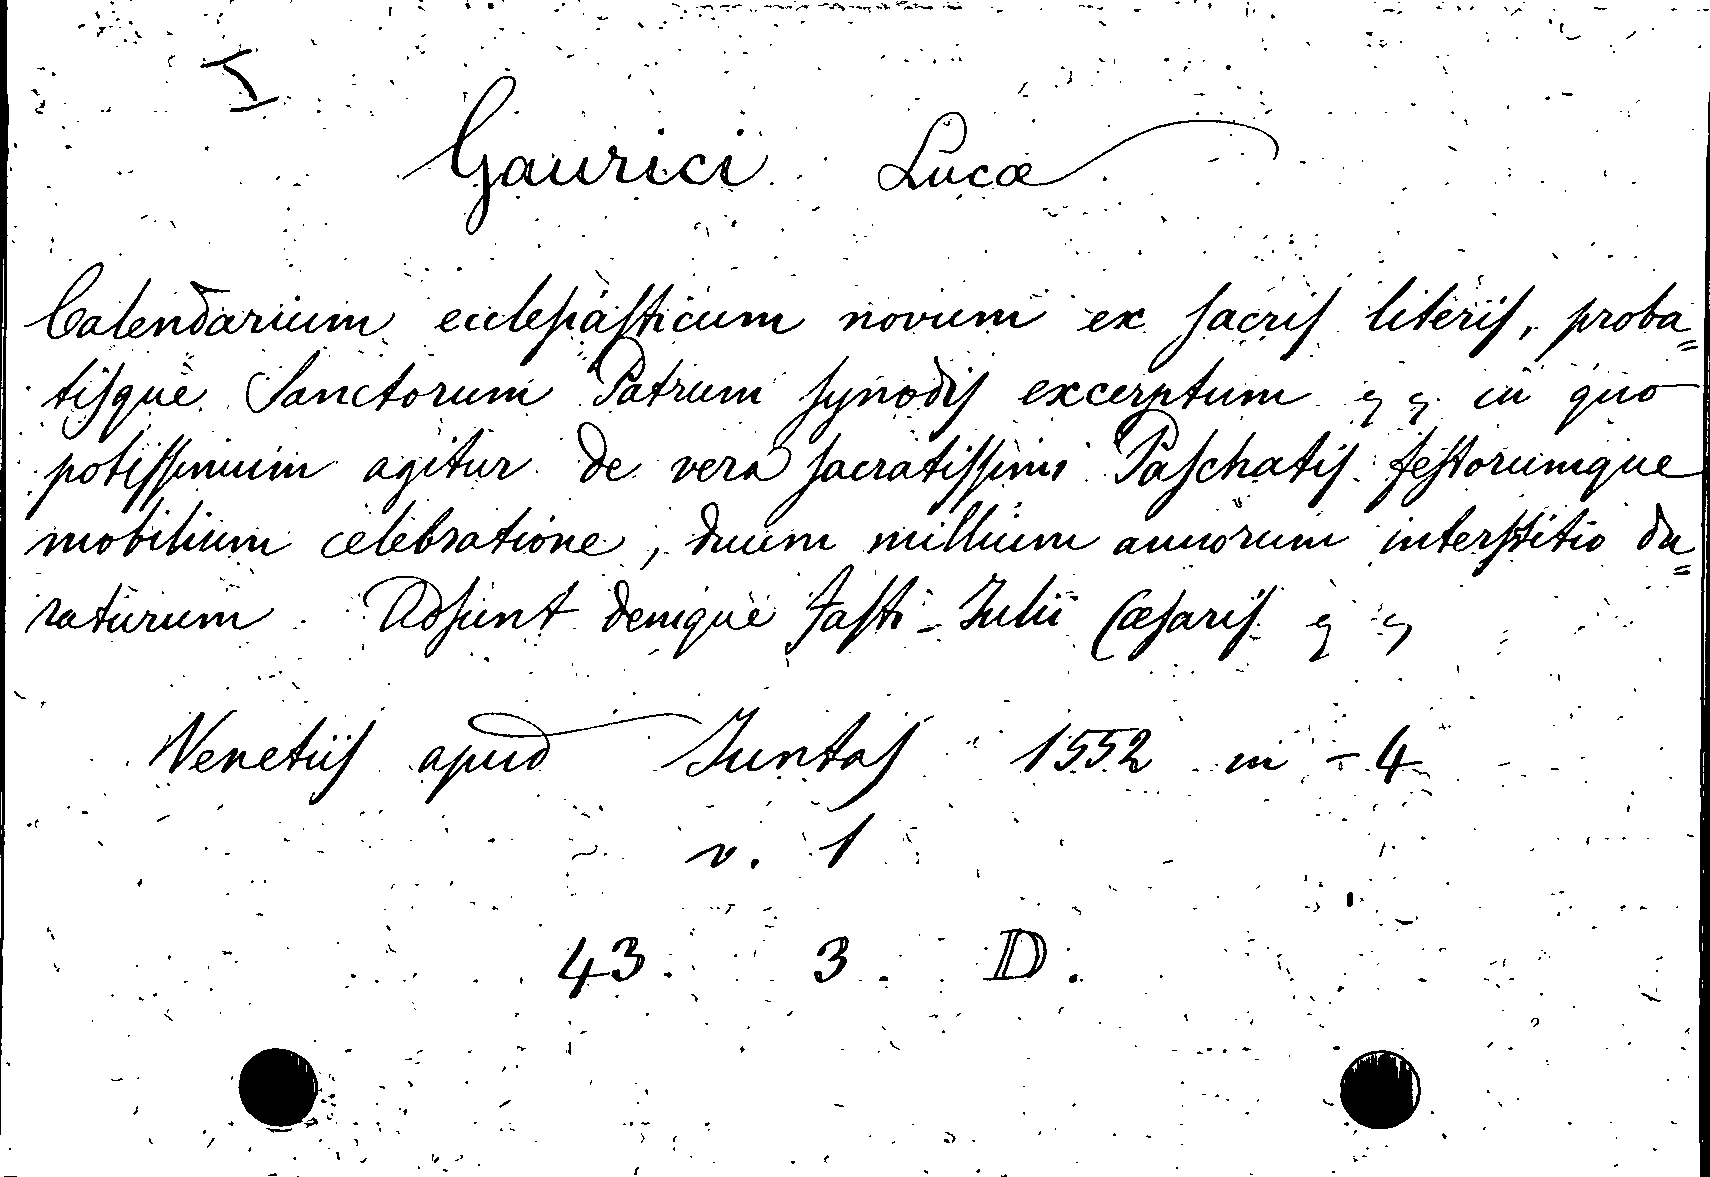 I
Gaurici Lucæ
Calendarium ecclesiasticum novum ex sacris literis, proba=
tisque Sanctorum Patrum synodis excerptum in quo
potissimum agitur de vera sacratissimi Paschatis festorumque
mobilium celebratione, duum millium annorum interstitio du=
raturum. Adsunt denique fasti Julii Cæsaris
Venetiis apud Juntas 1552 in - 4
v. 1
43. 3. D.